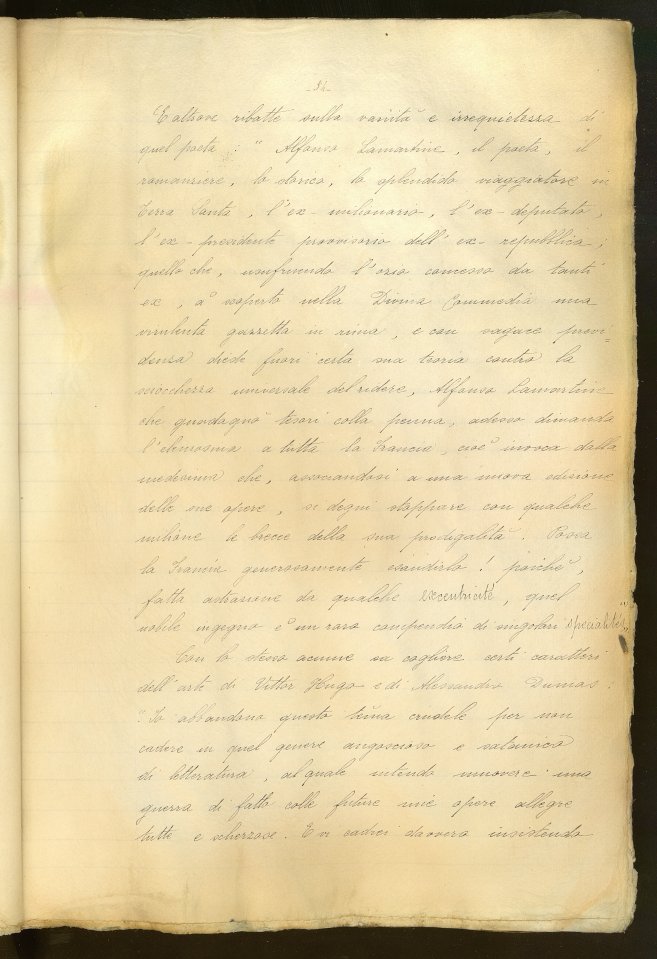 E altrove ribatte sulla vanità e irrequietezza di
quel poeta: "Alfonso Lamartine, il poeta, il
romanziere, lo storico, lo splendido viaggiatore in
Terra Santa, l'ex-milionario, l'ex-deputato,
l'ex-presidente provvisorio dell'ex-repubblica;
quello che, usufruendo l'ozio concesso da tanti
ex, à scoperto nella Divina Commedia una
virulenta gazzetta in rima, e con sagace previ-
denza diede fuori certa sua teoria contro la
sciocchezza universale del ridere, Alfonso Lamartine
che guadagnò tesori colla penna, adesso dimanda
l'elemosina a tutta la Francia, cioè invoca dalla
medesima che, associandosi a una nuova edizione
delle sue opere, si degni stoppare con qualche
milione le brecce della sua prodigalità. Possa
la Francia generosamente esaudirlo! poichè,
fatta astrazione da qualche excentricité, quel
nobile ingegno è un raro compendio di singolari specialités"
Con lo stesso acume sa cogliere certi caratteri
dell'arte di Vittor Hugo e di Alessandro Dumas:
"Io abbandono questo tema crudele per non
cadere in quel genere angoscioso e satanico
di letteratura, al quale intendo muovere una
guerra di fatto colle future mie opere allegre
tutte e scherzose. E vi cadrei davvero insistendo